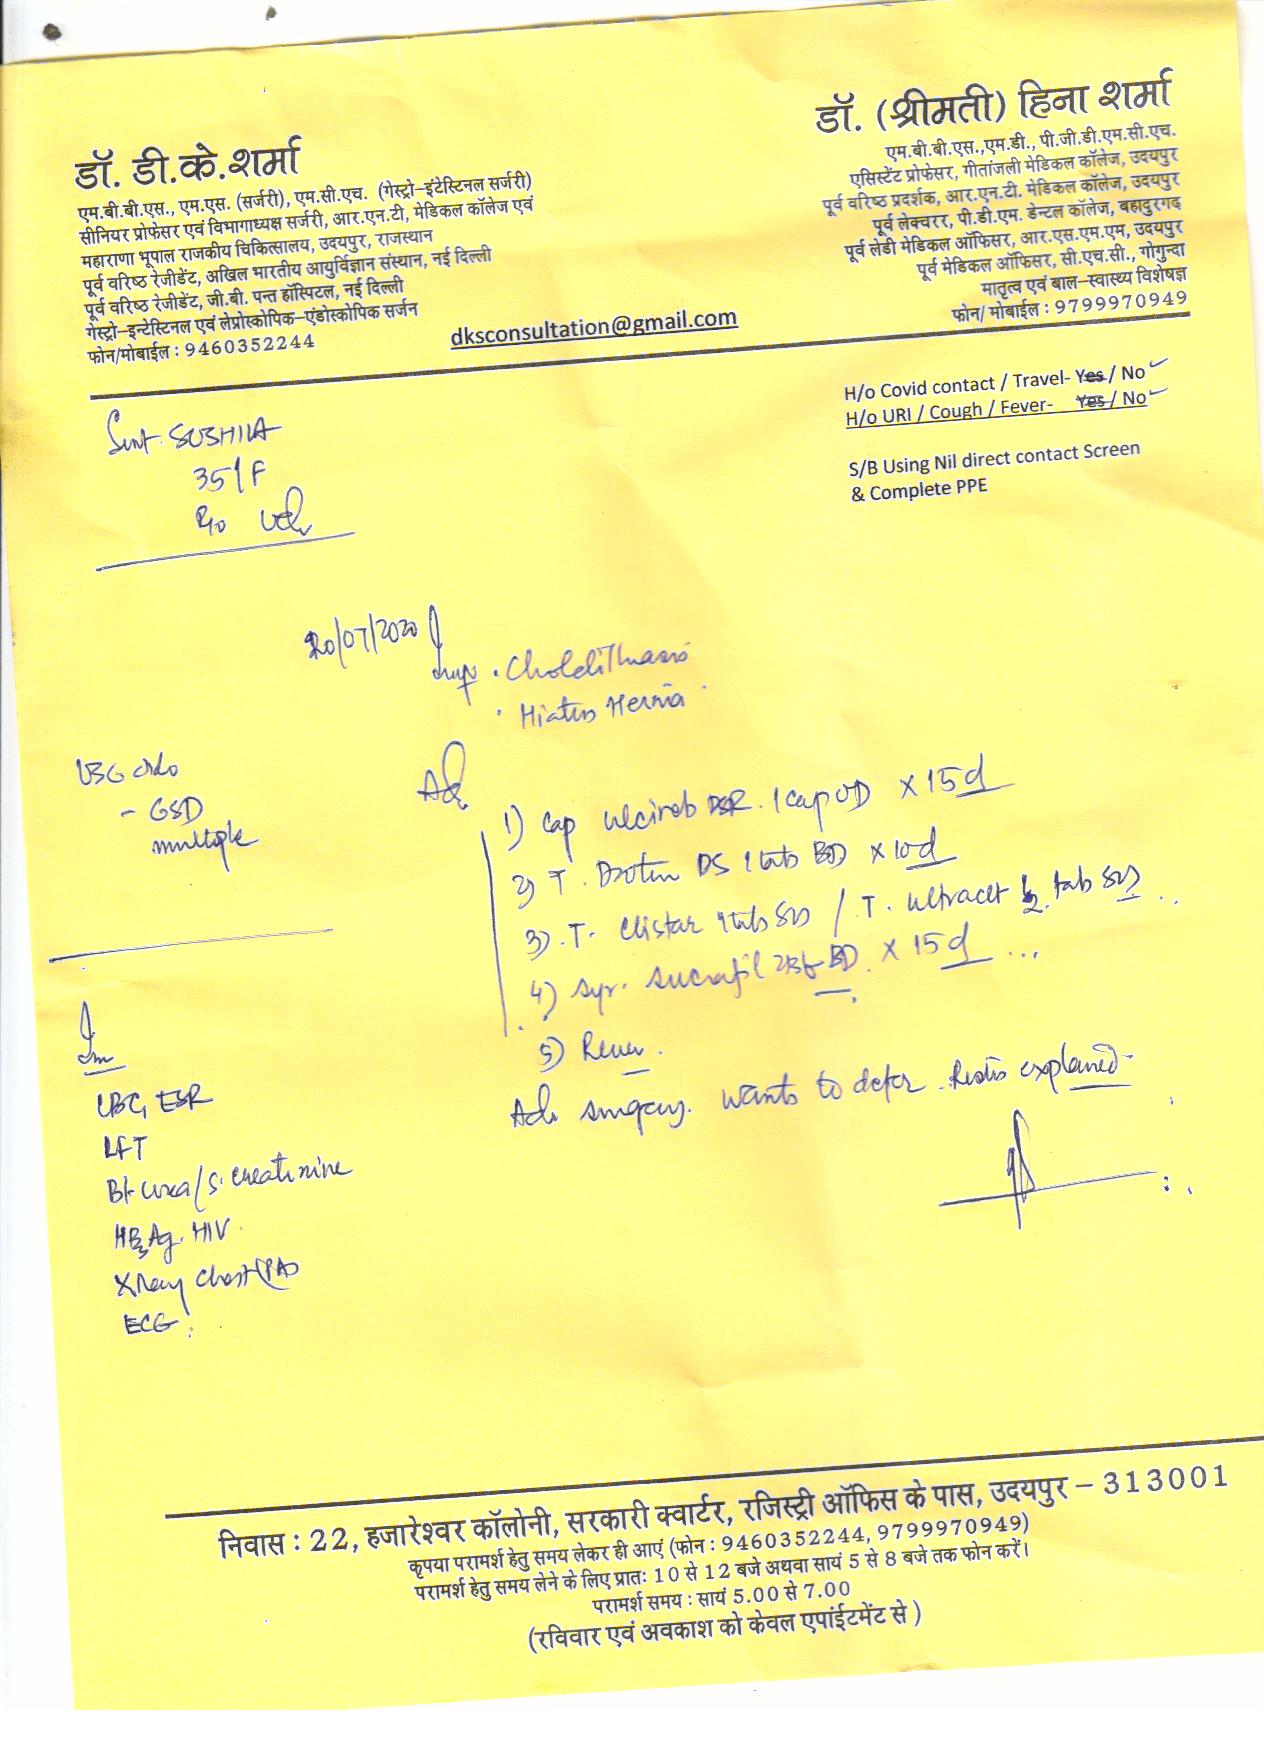 डॉ. डी.के.शर्मा
एम.बी.बी.एस., एम.एस. (सर्जरी), एम.सी.एच. (गेस्ट्रो-इंटेस्टिनल सर्जरी)
सीनियर प्रोफेसर एवं विभागाध्यक्ष सर्जरी, आर.एन.टी, मेडिकल कॉलेज एवं
महाराणा भूपाल राजकीय चिकित्सालय, उदयपुर, राजस्थान
पूर्व वरिष्ठ रेजीडेंट, अखिल भारतीय आयुर्विज्ञान संस्थान, नई दिल्ली
पूर्व वरिष्ठ रेजीडेंट, जी.बी. पन्त हॉस्पिटल, नई दिल्ली
गेस्ट्रो-इन्टेस्टिनल एवं लेप्रोस्कोपिक-एंडोस्कोपिक सर्जन
फोन/मोबाईल : 9460352244
dksconsultation@gmail.com
डॉ. (श्रीमती) हिना शर्मा
एम.बी.बी.एस.,एम.डी., पी.जी.डी.एम.सी.एच.
एसिस्टेंट प्रोफेसर, गीतांजली मेडिकल कॉलेज, उदयपुर
पूर्व वरिष्ठ प्रदर्शक, आर.एन.टी. मेडिकल कॉलेज, उदयपुर
पूर्व लेक्चरर, पी.डी.एम. डेन्टल कॉलेज, बहादुरगढ़
पूर्व लेडी मेडिकल ऑफिसर, आर.एस.एम.एम, उदयपुर
पूर्व मेडिकल ऑफिसर, सी.एच.सी., गोगुन्दा
मातृत्व एवं बाल-स्वास्थ्य विशेषज्ञ
फोन/ मोबाईल : 9799970949
H/o Covid contact / Travel- Yes / No
H/o URI / Cough / Fever- Yes / No
S/B Using Nil direct contact Screen
& Complete PPE
Smt. SUSHILA
35/F
R/o
20/07/2020
Imp . Cholelithiasis
. Hiatus Hernia
USG
- GSD
multiple
Adv
1) Cap DSR. 1 cap OD x 15d
2) T. Drotin DS 1 tab BD x 10d
3) T. 1 tab SOS / T. Ultracet ½ tab SOS
4) Syr. Sucrafil BD x 15d
5)
Adv surgery. wants to defer. Risks explained
Inv
CBC, ESR
LFT
Bl. urea / S. creatinine
HBsAg. HIV
X Ray Chest (PA)
ECG
निवास : 22, हजारेश्वर कॉलोनी, सरकारी क्वार्टर, रजिस्ट्री ऑफिस के पास, उदयपुर - 313001
कृपया परामर्श हेतु समय लेकर ही आएं (फोन : 9460352244, 9799970949)
परामर्श हेतु समय लेने के लिए प्रातः 10 से 12 बजे अथवा सायं 5 से 8 बजे तक फोन करें।
परामर्श समय : सायं 5.00 से 7.00
(रविवार एवं अवकाश को केवल एपांईटमेंट से )